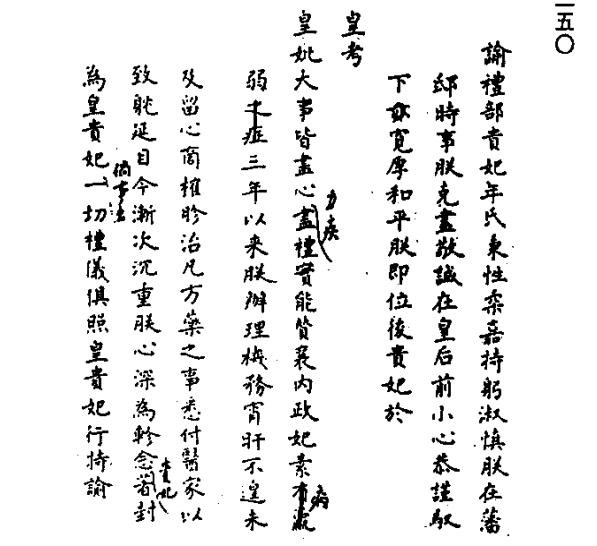 一五〇
諭禮部貴妃年氏秉性柔嘉持躬淑慎朕在藩
邸時事朕克盡敬誠在皇后前小心恭謹馭
下亦寬厚和平朕即位後貴妃於
皇考
皇妣大事皆盡心力疾盡禮實能贊襄內政妃素病羸
弱三年以來朕辦理機務宵旰不遑未
及留心商榷胗治凡方藥之事悉付醫家以
致躭延目今漸次沉重朕心深為軫念著封
為皇貴妃一切禮儀俱照皇貴妃行特諭